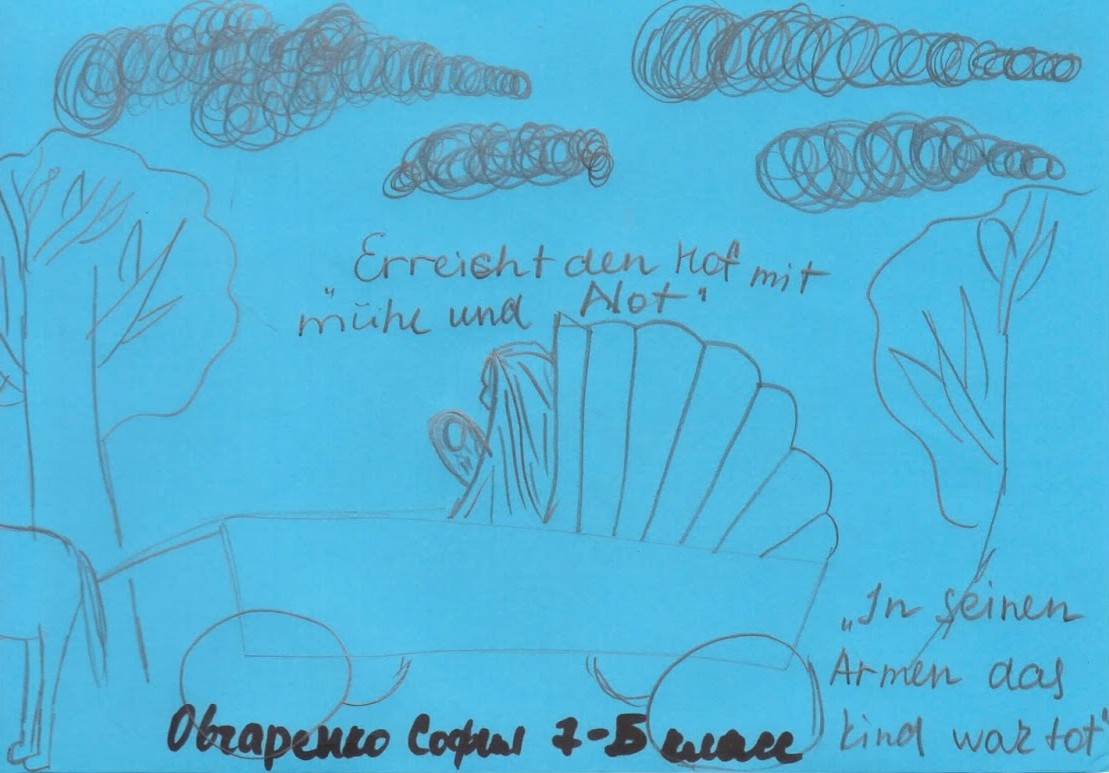 Erreicht den Hof mit
"mühe und Not"
„In seinen
Armen das
kind war tot"
Овчаренко София 7-Б класс